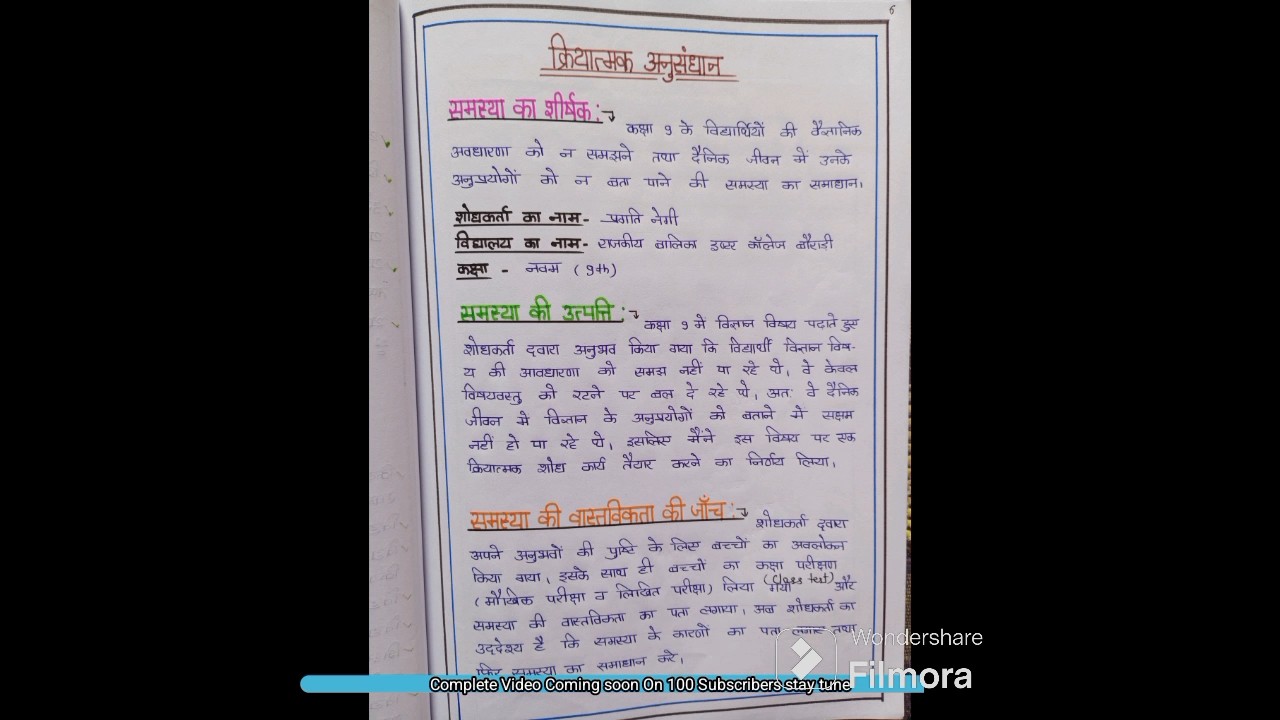 6
क्रियात्मक अनुसंधान
समस्या का शीर्षक :→ कक्षा 9 के विद्यार्थियों की वैज्ञानिक
अवधारणा को न समझने तथा दैनिक जीवन में उनके
अनुप्रयोगों को न बता पाने की समस्या का समाधान।
शोधकर्ता का नाम - प्रगति नेगी
विद्यालय का नाम - राजकीय बालिका इण्टर कॉलेज बौराड़ी
कक्षा - नवम (9th)
समस्या की उत्पत्ति :→ कक्षा 9 में विज्ञान विषय पढ़ाते हुए
शोधकर्ता द्वारा अनुभव किया गया कि विद्यार्थी विज्ञान विष-
य की आवधारणा को समझ नहीं पा रहे थे। वे केवल
विषयवस्तु को रटने पर बल दे रहे थे, अतः वे दैनिक
जीवन में विज्ञान के अनुप्रयोगों को बताने में सक्षम
नहीं हो पा रहे थे। इसलिए मैंने इस विषय पर एक
क्रियात्मक शोध कार्य तैयार करने का निर्णय लिया।
समस्या की वास्तविकता की जाँच :→ शोधकर्ता द्वारा
अपने अनुभवों की पुष्टि के लिए बच्चों का अवलोकन
किया गया। इसके साथ ही बच्चों का कक्षा परीक्षण
(class test)
(मौखिक परीक्षा व लिखित परीक्षा) लिया गया और
समस्या की वास्तविकता का पता लगाया। अब शोधकर्ता का
उद्देश्य है कि समस्या के कारणों का पता लगाए तथा
फिर समस्या का समाधान करे।
Wondershare
Filmora
Complete Video Coming soon On 100 Subscribers stay tune